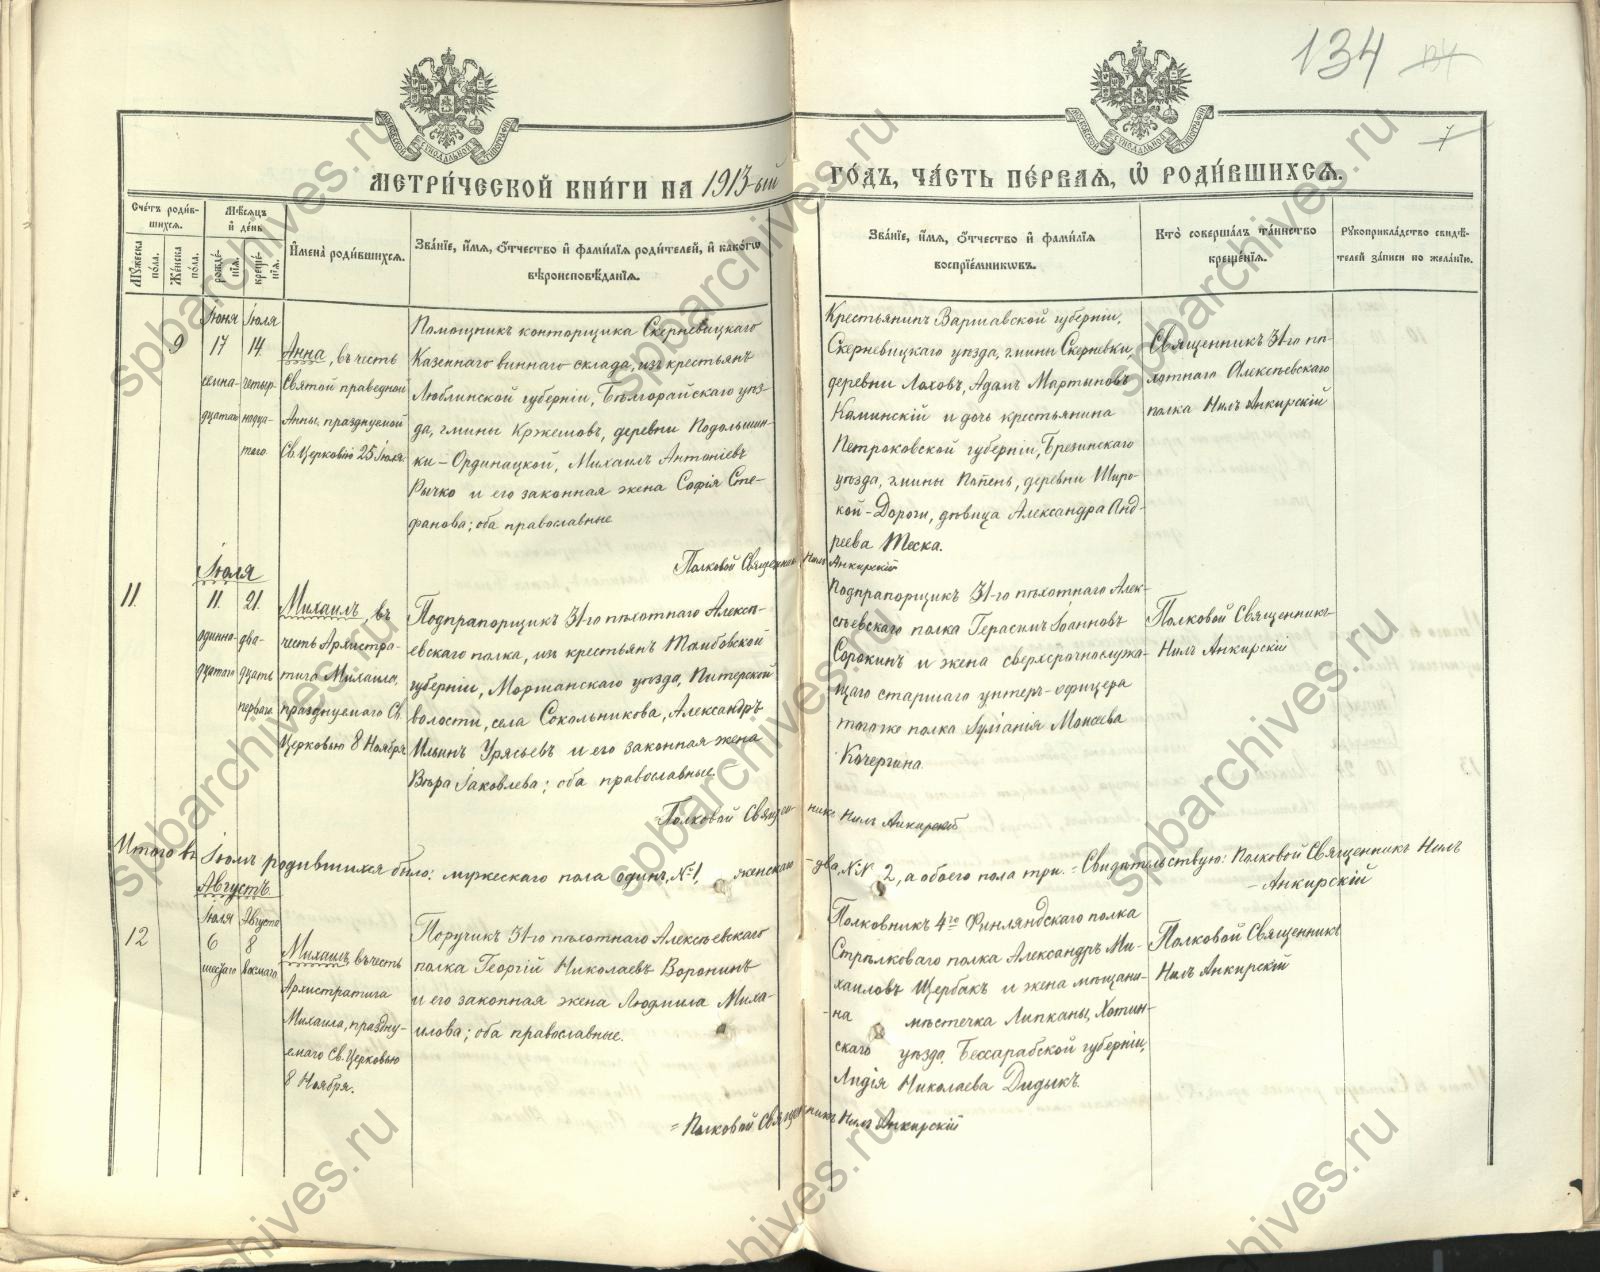 134
7
МОСКОВСКОЙ СѴНОДАЛЬНОЙ ТИПОГРАФІИ
МОСКОВСКОЙ СѴНОДАЛЬНОЙ ТИПОГРАФІИ
МЕТРИ́ЧЕСКОЙ КНИ́ГИ НА 1913-ый ГО́ДЪ, ЧА́СТЬ ПЕ́РВАЯ, Ѡ РОДИ́ВШИХСЯ.
Сче́тъ роди́в-
шихся.
Мꙋжеска по́ла.
Же́нска по́ла.
Мѣ́сяцъ
и де́нь
рожде́-
нїя.
креще́-
нїя.
И҆мена̀ роди́вшихся.
Зва́нїе, и҆́мя, ѻ҆́тчество и҆ фами́лїя роди́телей, и҆ како́гѡ
вѣроисповѣ́данїя.
Зва́нїе, и҆́мя, ѻ҆́тчество и҆ фами́лїя
воспрїе́мникѡвъ.
Кто̀ соверша́лъ та́инство
креще́нїя.
Рꙋкоприкла́дство свидѣ́-
телей за́писи по жела́нїю.
9
Іюня
17
семна-
дцатаго
Іюля
14
четыр-
надца-
таго
Анна, въ честь
Святой праведной
Анны, празднуемой
Св. Церковію 25 Іюля.
Помощникъ конторщика Скерневицкаго
Казеннаго виннаго склада, изъ крестьянъ
Люблинской губерніи, Бѣлгорайскаго уѣз-
да, гмины Кржешовъ, деревни Подольшин-
ки-Ординацкой, Михаилъ Антоніевъ
Рычко и его законная жена Софія Сте-
фанова; оба православные
Крестьянинъ Варшавской губерніи,
Скерневицкаго уѣзда, гмины Скерневки,
деревни Ляховъ, Адамъ Мартыновъ
Каминскій и дочь крестьянина
Петроковской губерніи, Брезинскаго
уѣзда, гмины Попень, деревни Широ-
кой-Дороги, дѣвица Александра Анд-
реева Теска.
Священникъ 31-го пѣ-
хотнаго Алексѣевскаго
полка Нилъ Анкирскій
Полковой Священникъ Нилъ Анкирскій
Іюля
11.
11.
одинна-
дцатаго
21.
два-
дцать
перваго
Михаилъ, въ
честь Архистра-
тига Михаила,
празднуемаго Св.
Церковью 8 Ноября
Подпрапорщикъ 31-го пѣхотнаго Алексѣ-
евскаго полка, изъ крестьянъ Тамбовской
губерніи, Моршанскаго уѣзда, Питерской
волости, села Сокольникова, Александръ
Ильинъ Урясьевъ и его законная жена
Вѣра Іаковлева; оба православные.
Подпрапорщикъ 31-го пѣхотнаго Алек-
сѣевскаго полка Герасимъ Іоанновъ
Сорокинъ и жена сверхсрочнослужа-
щаго старшаго унтеръ-офицера
того же полка Іуліанія Моисеева
Кочергина.
Полковой Священникъ
Нилъ Анкирскій
Полковой Священникъ Нилъ Анкирскій
Итого въ Іюлѣ родившихся было: мужескаго пола одинъ, № 1, женскаго – два, №№ 2, а обоего пола три. = Свидѣтельствую: Полковой Священникъ Нилъ
Анкирскій
Августъ.
12
Іюля
6
шестаго
Августа
8
восмаго
Михаилъ, въ честь
Архистратига
Михаила, праздну-
емаго Св. Церковью
8 Ноября.
Поручикъ 31-го пѣхотнаго Алексѣевскаго
полка Георгій Николаевъ Воронинъ
и его законная жена Людмила Миха-
илова; оба православные.
Полковникъ 4го Финляндскаго полка
Стрѣлковаго полка Александръ Ми-
хаиловъ Щербакъ и жена мѣщани-
на мѣстечка Липканы, Хотин-
скаго уѣзда, Бессарабской губерніи,
Лидія Николаева Дидыкъ.
Полковой Священникъ
Нилъ Анкирскій
= Полковой Священникъ Нилъ Анкирскій
spbarchives.ru